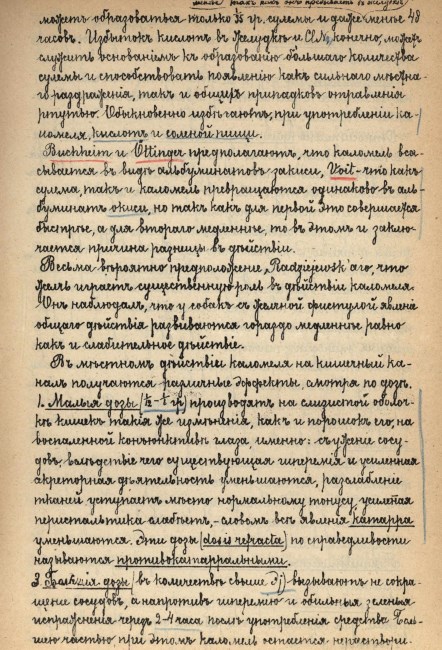 можетъ образоваться только ⅗ гр. сулемы и даже меньше 48
часовъ. Избытокъ кислотъ въ желудкѣ и ClNa, конечно, можетъ
служить основаніемъ къ образованію большаго количества
сулемы и способствовать появленію какъ сильнаго мѣстна-
го раздраженія, такъ и общихъ припадковъ отравленія
ртутью. Обыкновенно избѣгаютъ, при употребленіи ка-
ломеля, кислотъ и соленой пищи.
Buchheim и Ottinger предполагаютъ, что каломель вса-
сывается въ видѣ альбуминатовъ закиси, Voit - что какъ
сулема, такъ и каломель превращаются одинаково въ аль-
буминатъ окиси, но такъ какъ для первой это совершается
быстрѣе, а для втораго медленнѣе, то въ этомъ и заклю-
чается причина разницы въ дѣйствіи.
Весьма вѣроятно предположеніе „Radziejewsk'аго, что
желчь играетъ существенную роль въ дѣйствіи каломеля.
Онъ наблюдалъ, что у собакъ съ желчной фистулой явленія
общаго дѣйствія развиваются гораздо медленнѣе равно
какъ и слабительное дѣйствіе.
Въ мѣстномъ дѣйствіи каломеля на кишечный ка-
налъ получаются различные эффекты, смотря по дозѣ.
1. Малыя дозы производятъ на слизистой оболоч-
кѣ кишекъ такія же измѣненія, какъ и порошокъ его, на
воспаленной конъюнктивѣ глаза, именно: съуженіе сосу-
довъ, вслѣдствіе чего существующая гиперемія и усиленная
секреторная дѣятельность уменьшаются, разслабленіе
тканей уступаетъ мѣсто нормальному тонусу, усиленная
перистальтика слабѣетъ, - словомъ всѣ явленія катарра
уменьшаются. Эти дозы (dosis refracta) по справедливости
называются противокатарральными.
Большія дозы (въ количествѣ свыше ℈j) вызываютъ не сокра-
щеніе сосудовъ, а напротивъ гиперемію и обильныя зеленыя
испражненія черезъ 2-4 часа послѣ употребленія средства. Боль-
шею частью при этомъ каломель остается нераствори-